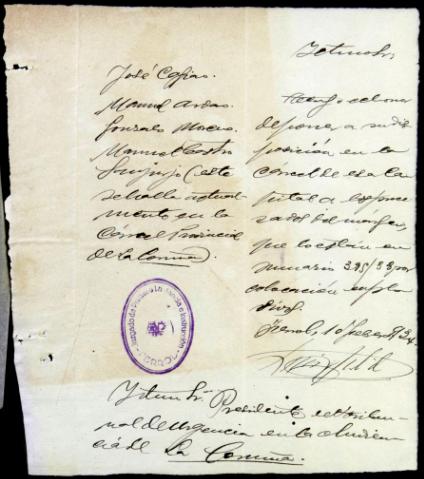 José Cofiño.
Manuel Ardao.
Gonzalo Moseos.
Manuel Castro
Sanjurjo (este
se halla actual-
mente en la
Cárcel Provincial
de La Coruña)
Iltmo Sr.
Tengo el honor
de poner a su dis
posición en la
cárcel de esa Ca
pital a los proce
sados del margen,
que lo están en
sumario 395/33 por
colocación explo
sivos.
Ferrol 10 febrero 934
Juzgado de Primera Instancia e Instrucción
Iltmo Sr. Presidente del Tribu-
nal de Urgencia en la Audien
cia de La Coruña.